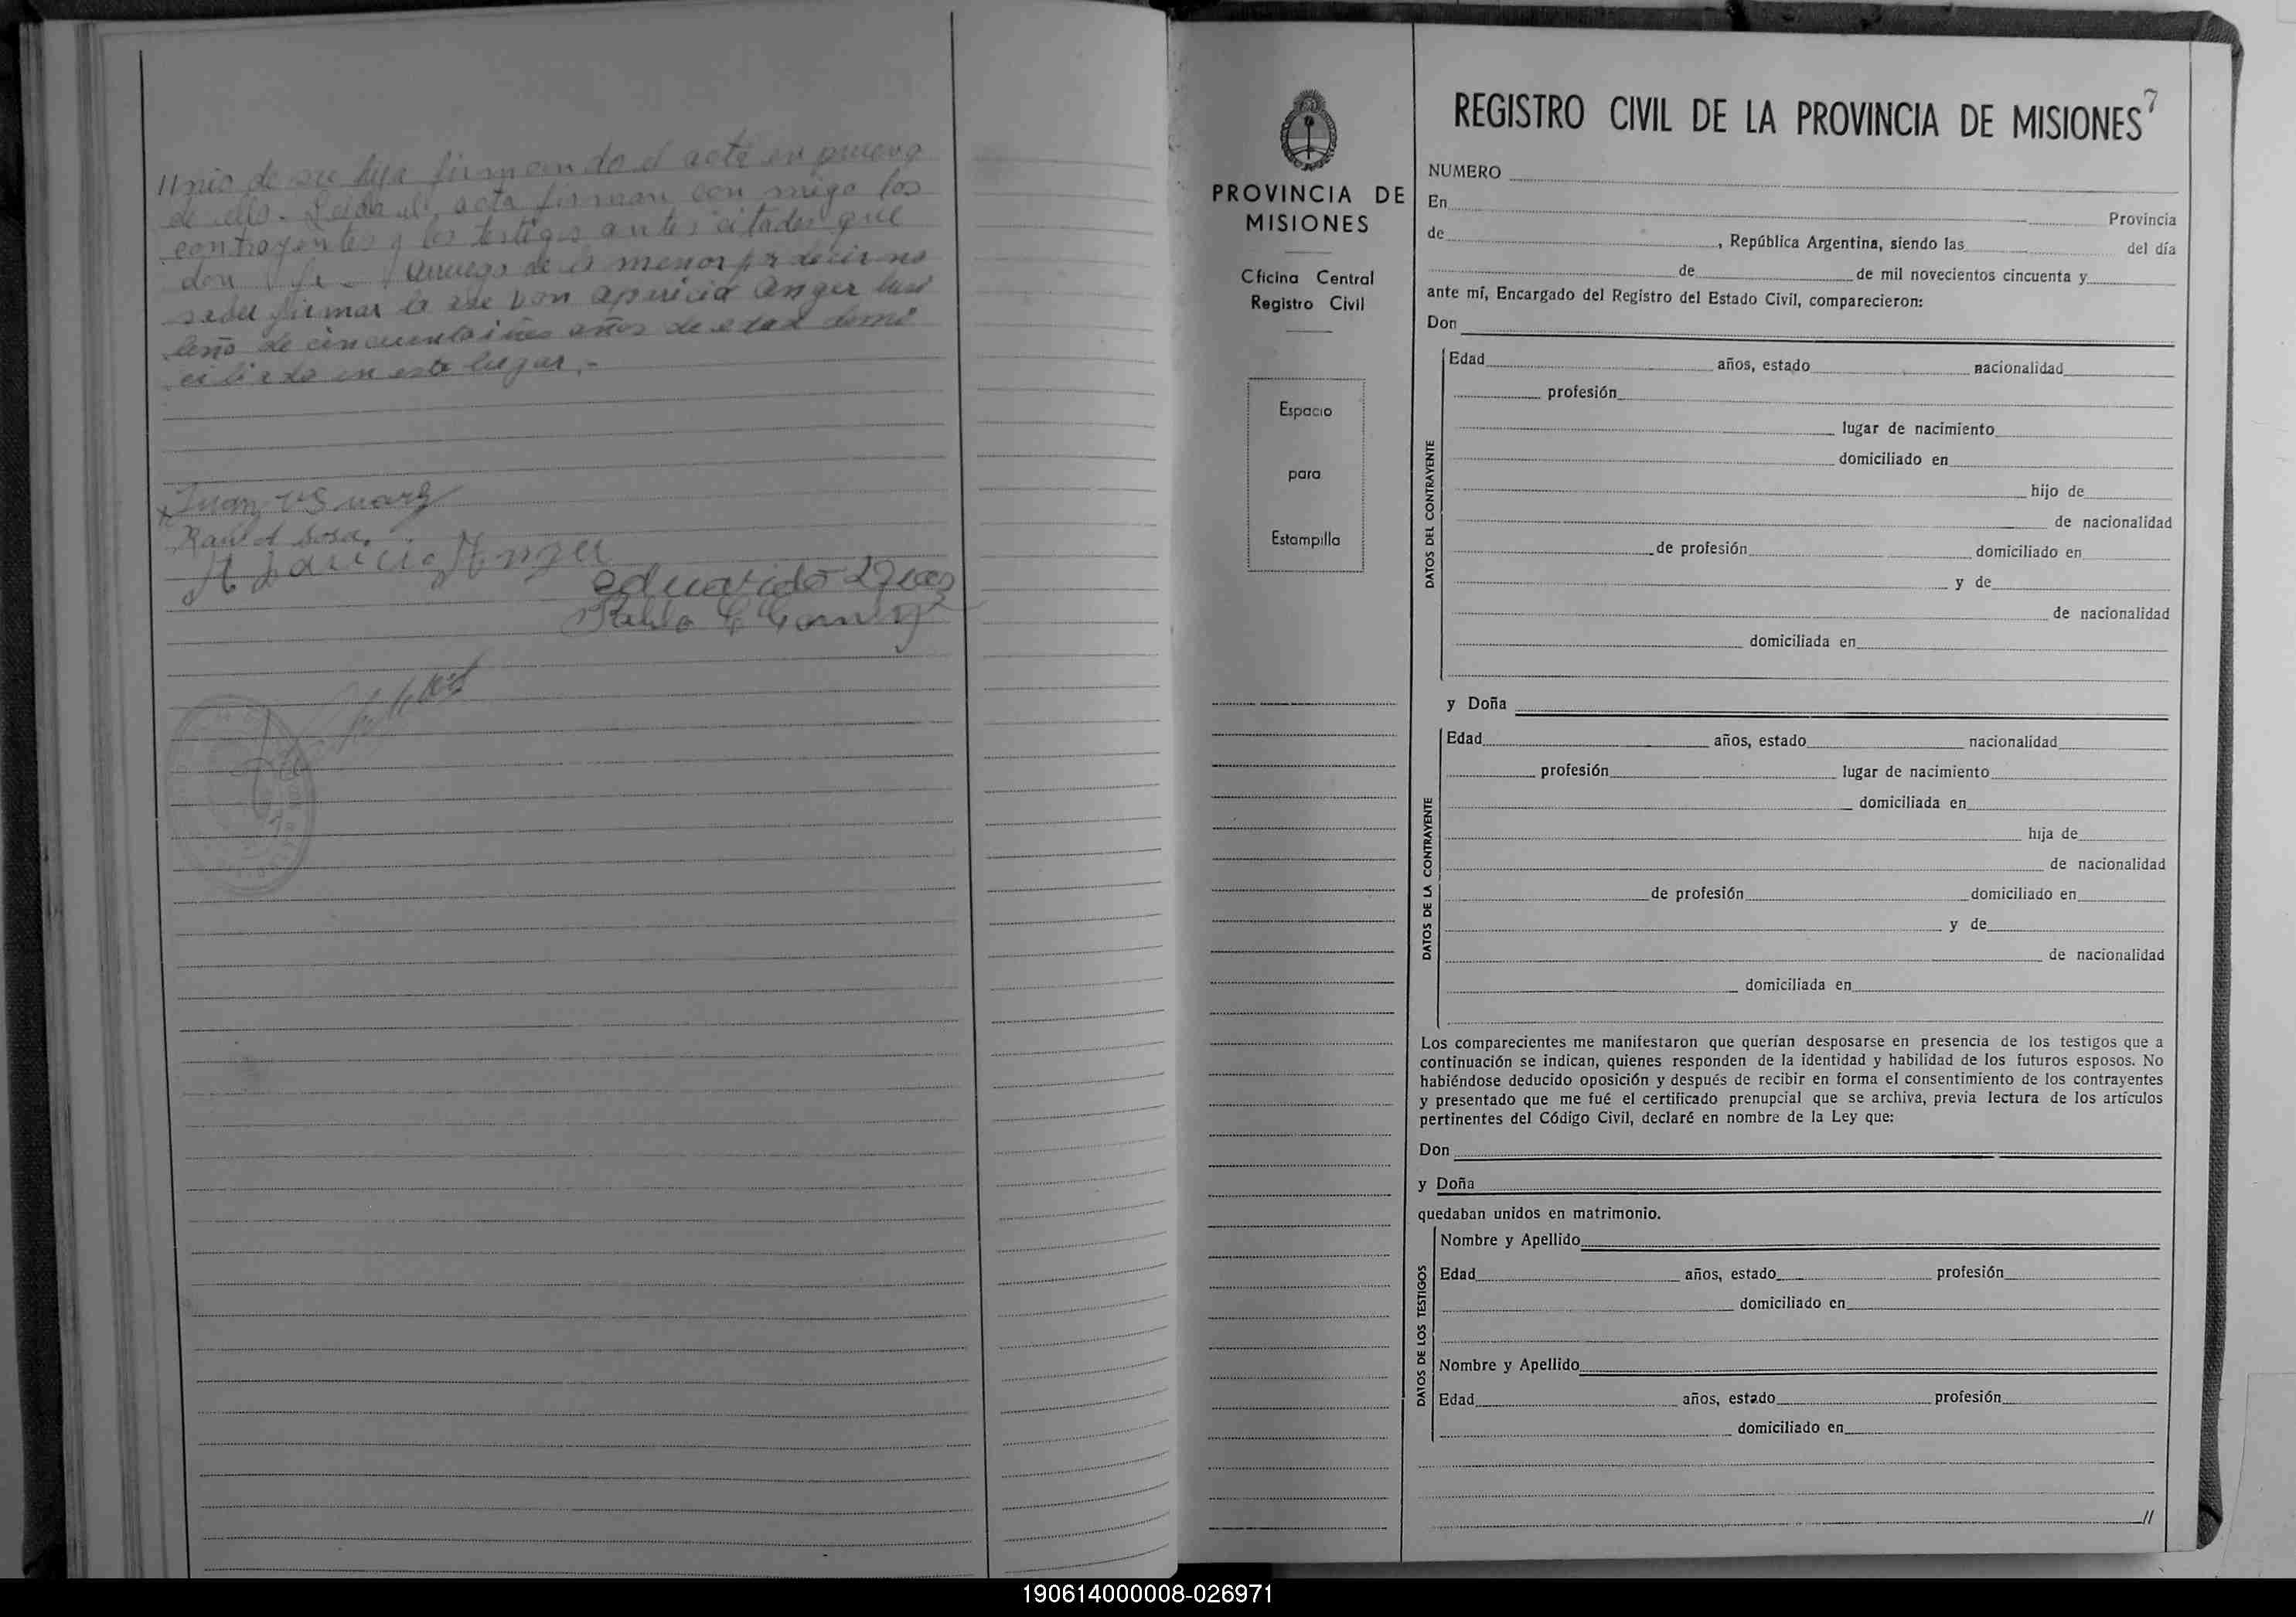 //nio de su hija firmando el acta en prueva
de ello. Leida el acta firman con migo los
contrayentes y los testigos antes citados que
don a ruego de la menor por decir no
saber firmar la ase Don aparicio Anger
de cincuenta años de edad domi
ciliado en este lugar.-
Juan
Raul A Sosa
Aparicio Anger
eduavido
Pablo
7
REGISTRO CIVIL DE LA PROVINCIA DE MISIONES
PROVINCIA DE
MISIONES
Oficina Central
Registro Civil
Espacio
para
Estampilla
NUMERO
En Provincia
de , República Argentina, siendo las del día
de de mil novecientos cincuenta y
ante mí, Encargado del Registro del Estado Civil, comparecieron:
Don
DATOS DEL CONTRAYENTE
Edad años, estado nacionalidad
profesión
lugar de nacimiento
domiciliado en
hijo de
de nacionalidad
de profesión domiciliado en
y de
de nacionalidad
domiciliada en
y Doña
DATOS DE LA CONTRAYENTE
Edad años, estado nacionalidad
profesión lugar de nacimiento
domiciliada en
hija de
de nacionalidad
de profesión domiciliado en
y de
de nacionalidad
domiciliada en
Los comparecientes me manifestaron que querían desposarse en presencia de los testigos que a
continuación se indican, quienes responden de la identidad y habilidad de los futuros esposos. No
habiéndose deducido oposición y después de recibir en forma el consentimiento de los contrayentes
y presentado que me fué el certificado prenupcial que se archiva, previa lectura de los artículos
pertinentes del Código Civil, declaré en nombre de la Ley que:
Don
y Doña
quedaban unidos en matrimonio.
DATOS DE LOS TESTIGOS
Nombre y Apellido
Edad años, estado profesión
domiciliado en
Nombre y Apellido
Edad años, estado profesión
domiciliado en
//
190614000008-026971